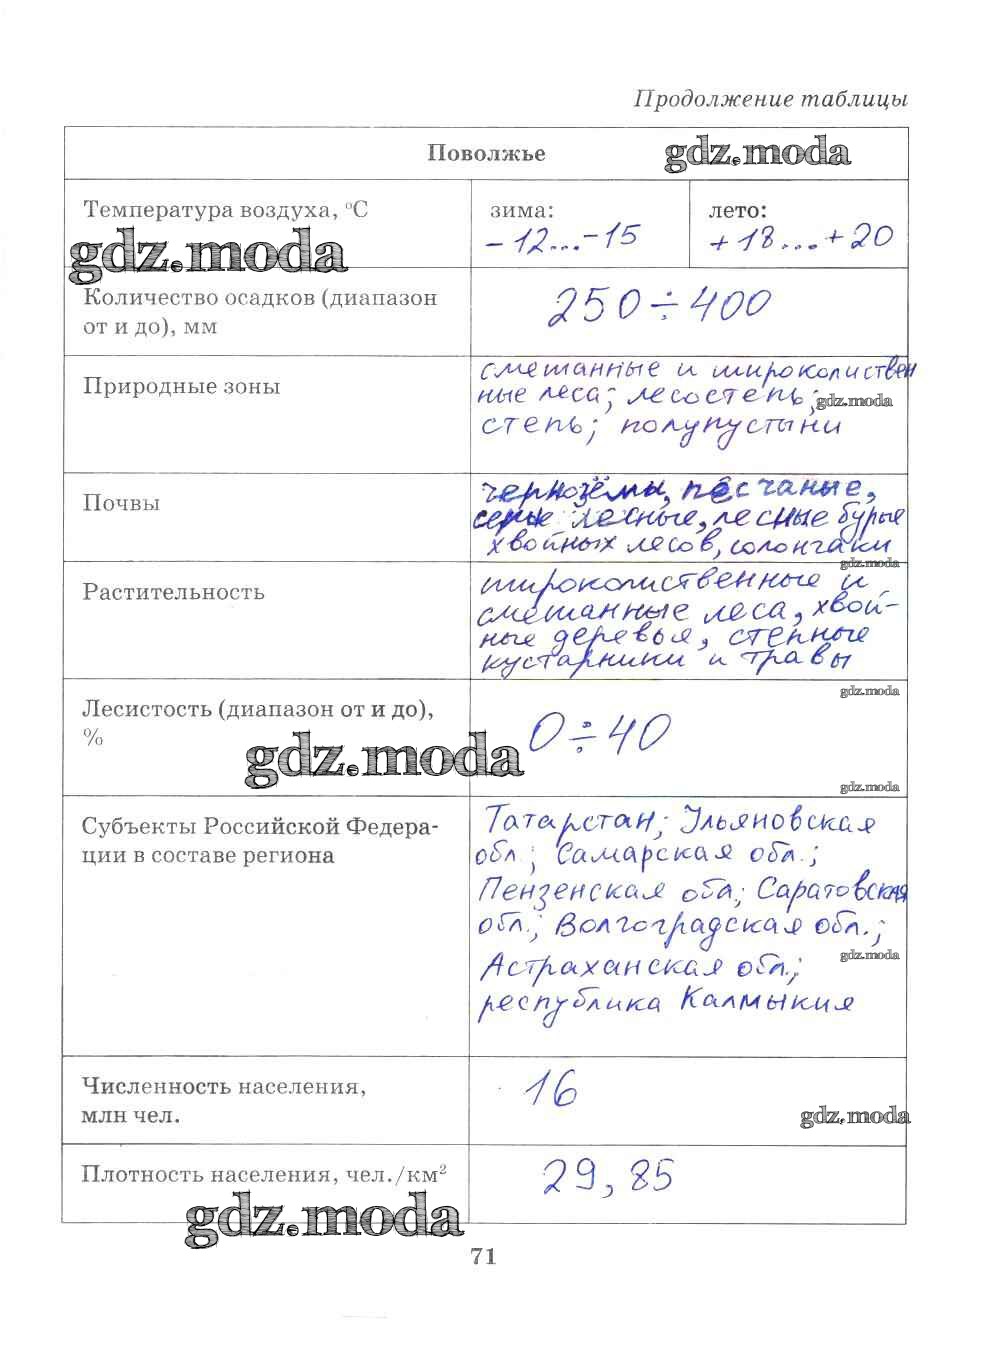 Продолжение таблицы
Поволжье
gdz.moda
Температура воздуха, °С
зима:
лето:
-12...-15
+18...+20
gdz.moda
Количество осадков (диапазон
от и до), мм
250÷400
Природные зоны
смешанные и широколиствен
ные леса; лесостепь;
gdz.moda
степь; полупустыни
Почвы
чернозёмы, песчаные,
серые лесные, лесные бурые
хвойных лесов, солончаки
gdz.moda
Растительность
широколиственные и
смешанные леса, хвой-
ные деревья, степные
кустарники и травы
Лесистость (диапазон от и до),
%
gdz.moda
0÷40
gdz.moda
gdz.moda
Субъекты Российской Федера-
ции в составе региона
Татарстан; Ульяновская
обл.; Самарская обл.;
Пензенская обл; Саратовская
обл.; Волгоградская обл.;
gdz.moda
Астраханская обл.;
республика Калмыкия
Численность населения,
млн чел.
16
gdz.moda
Плотность населения, чел./км²
29,85
gdz.moda
71